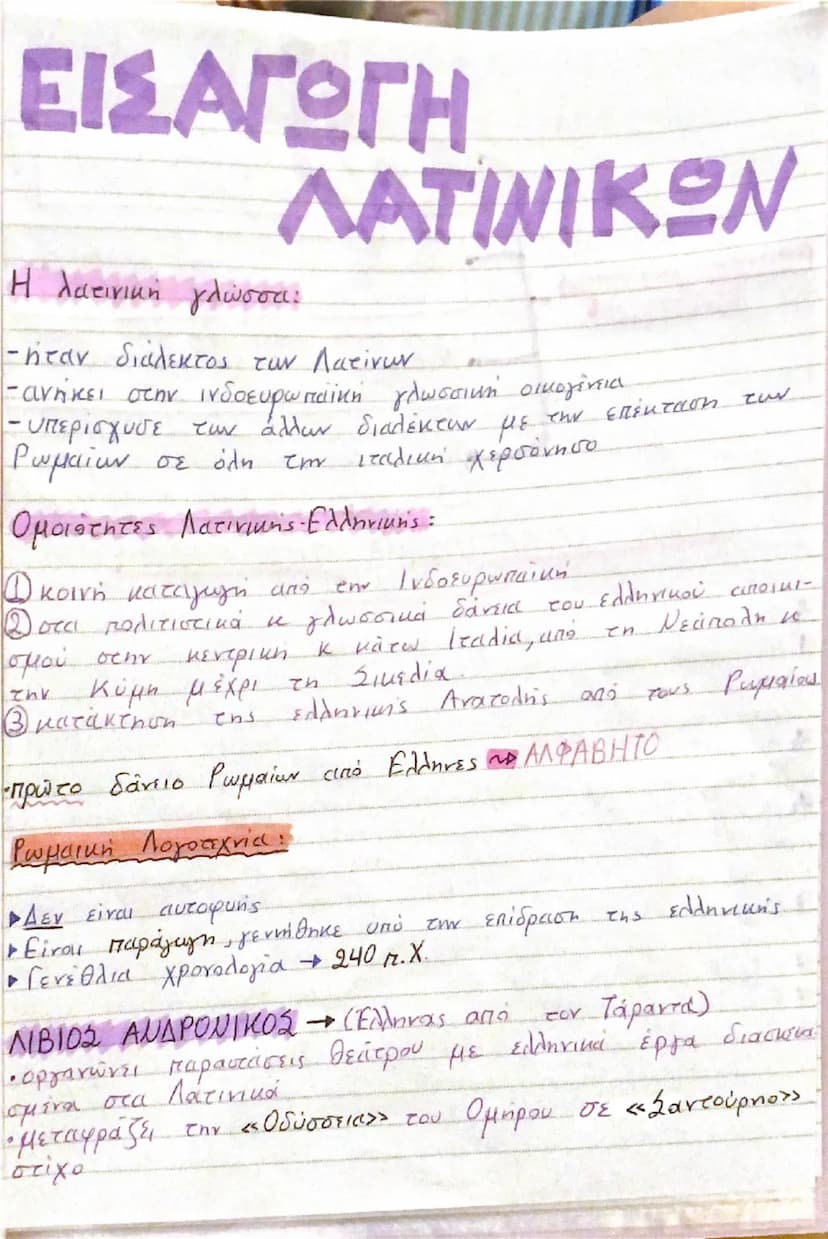 ΕΙΣΑΓΩΓΗ
ΛΑΤΙΝΙΚΩΝ
Η λατινική γλώσσα:
-ήταν διάλεκτος των Λατίνων
-ανήκει στην ινδοευρωπαϊκή γλωσσική οικογένεια
-υπερίσχυσε των άλλων διαλέκτων με την επέκταση των
Ρωμαίων σε όλη την ιταλική χερσόνησο
Ομοιότητες Λατινικής-Ελληνικής:
① κοινή καταγωγή από την Ινδοευρωπαϊκή
② στα πολιτιστικά κ γλωσσικά δάνεια του ελληνικού αποικι-
σμού στην κεντρική κ κάτω Ιταλία, από τη Νεάπολη κ
την Κύμη μέχρι τη Σικελία.
③ κατάκτηση της ελληνικής Ανατολής από τους Ρωμαίους
·πρώτο δάνειο Ρωμαίων από Έλληνες ⇝ ΑΛΦΑΒΗΤΟ
Ρωμαϊκή Λογοτεχνία:
▸Δεν είναι αυτοφυής
▸Είναι παράγωγη, γεννήθηκε υπό την επίδραση της ελληνικής
▸Γενέθλια χρονολογία → 240 π.Χ.
ΛΙΒΙΟΣ ΑΝΔΡΟΝΙΚΟΣ → (Έλληνας από τον Τάραντα)
·οργανώνει παραστάσεις θεάτρου με ελληνικά έργα διασκευα
σμένα στα Λατινικά
·μεταφράζει την «Οδύσσεια» του Ομήρου σε «Σαντούρνιο»
στίχο